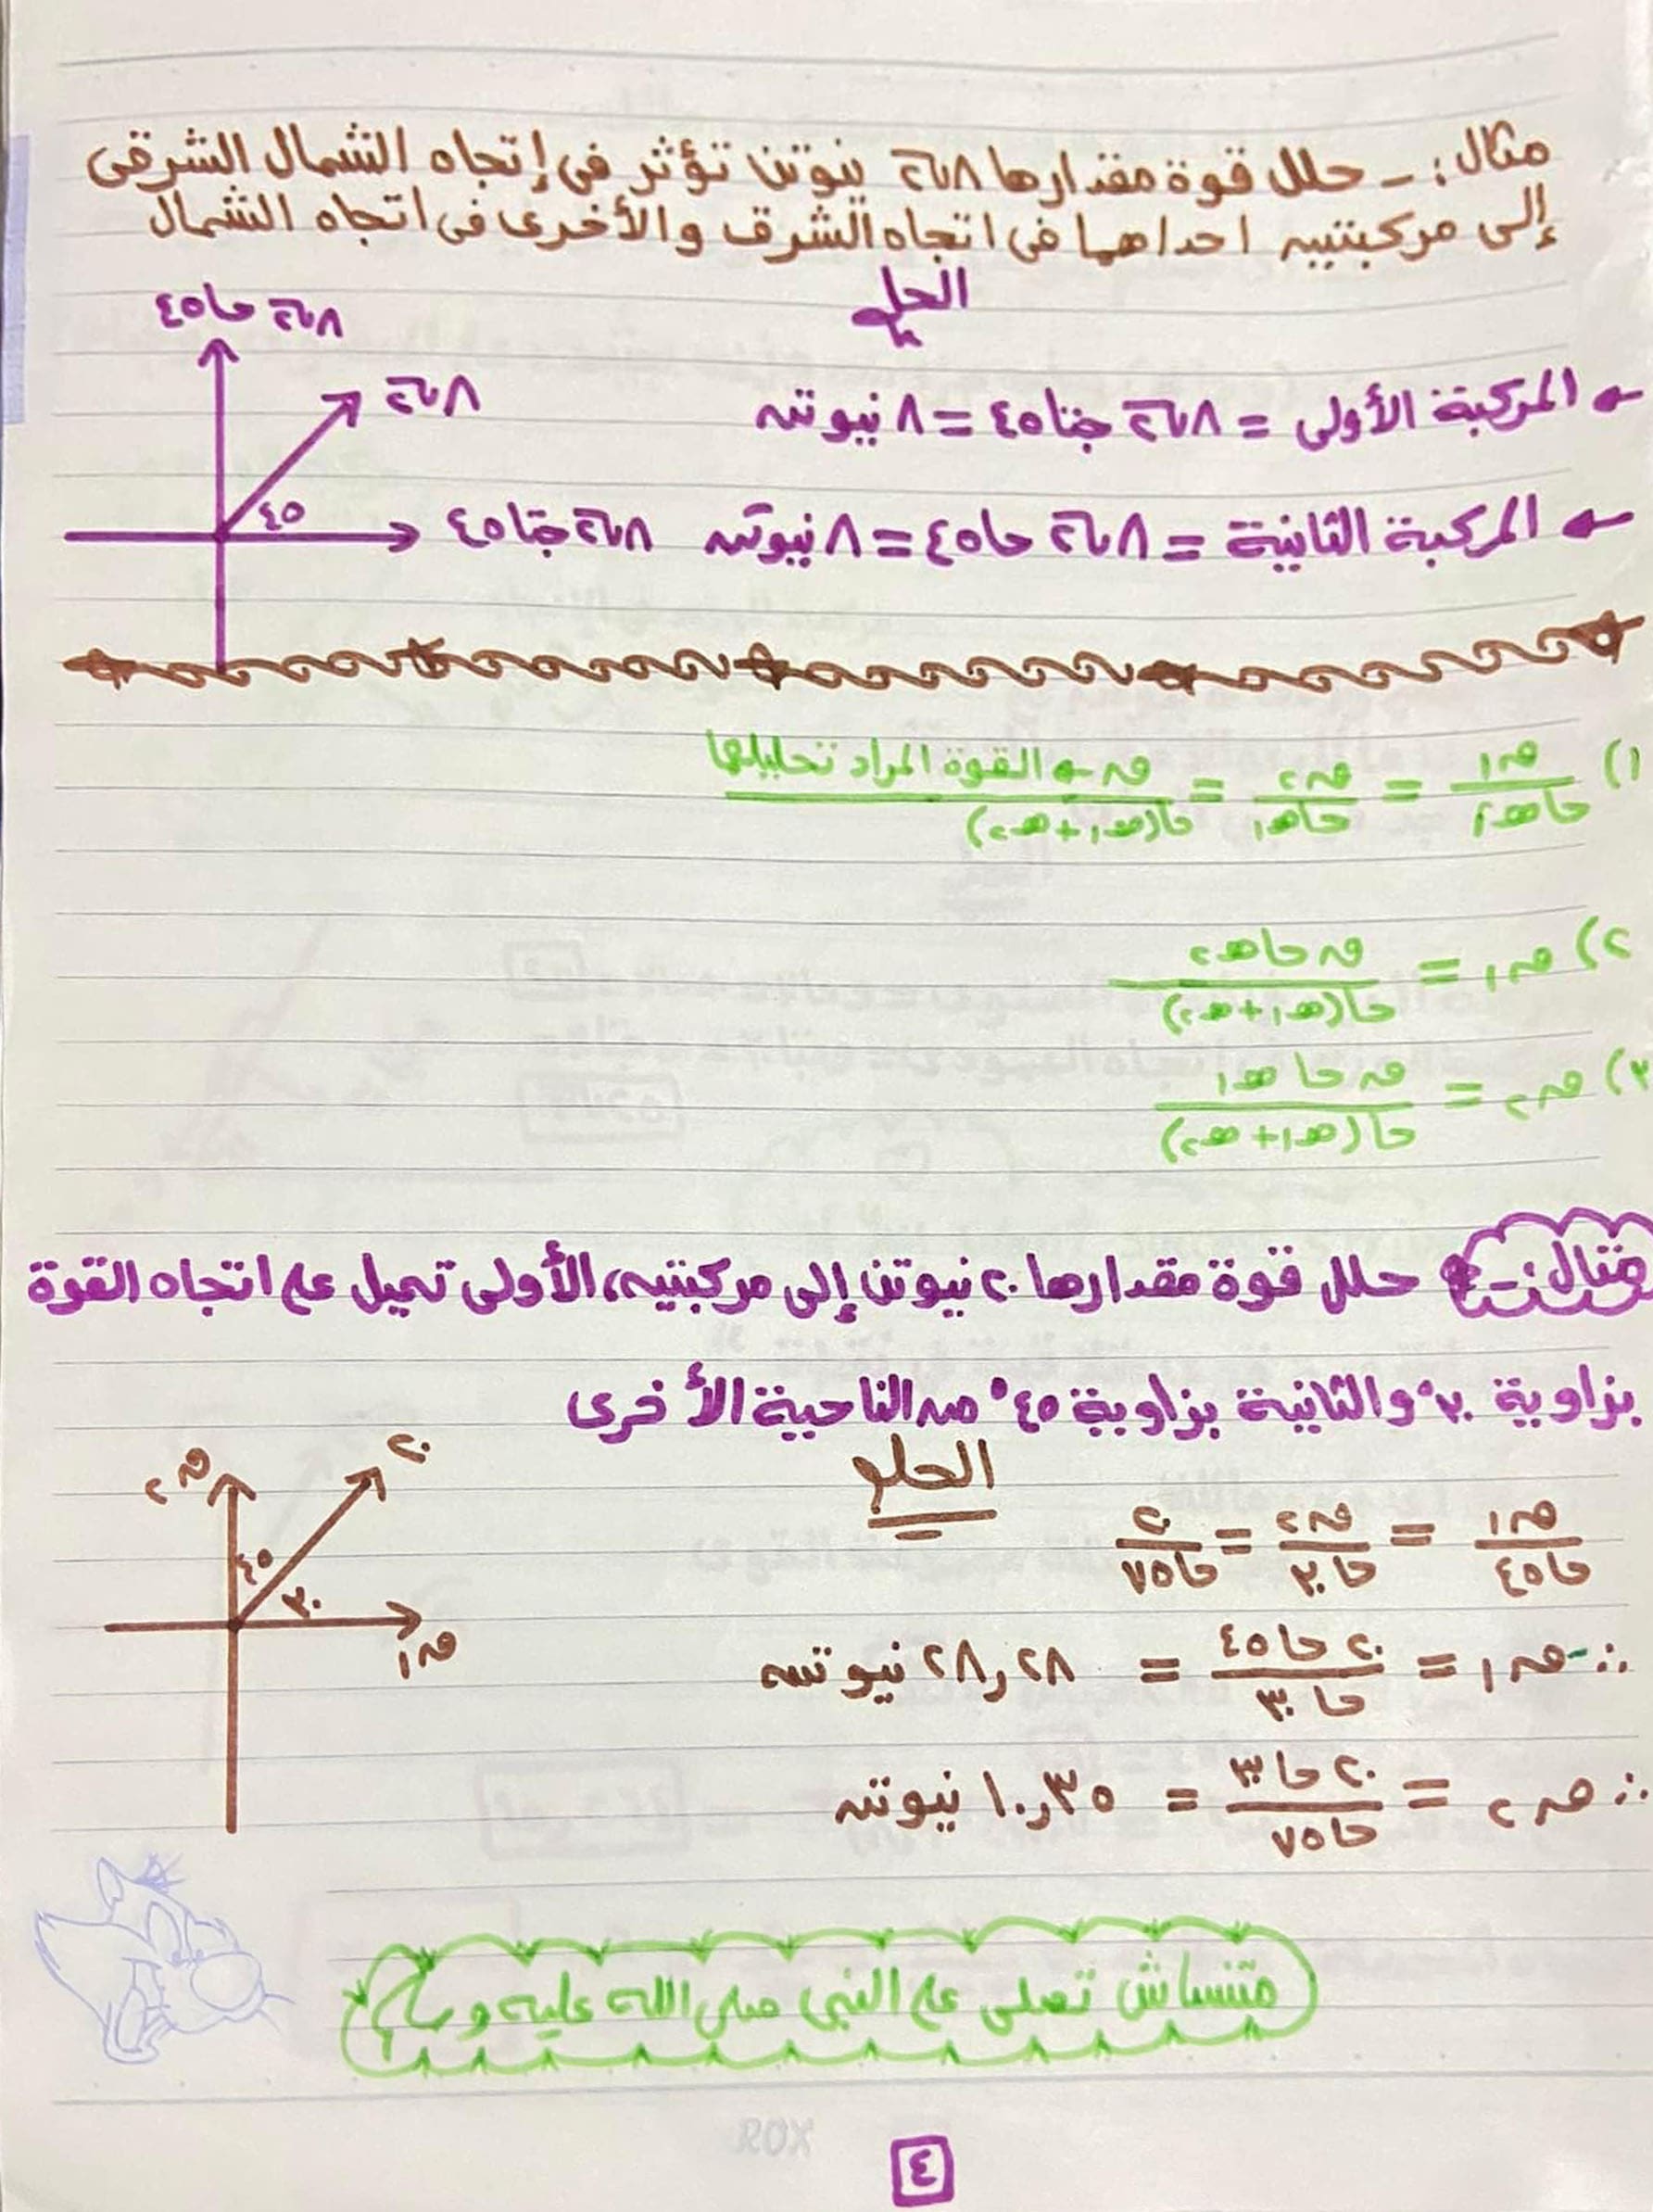 مثال :- حلل قوة مقدارها ٨√٢ ينوتن تؤثر في إتجاه الشمال الشرقى
إلى مركبتييه احداهما في اتجاه الشرق والأخرى في اتجاه الشمال
الحل
٨√٢ حا٤٥
٨√٢
٤٥
٨√٢ جتا٤٥
← المركبة الأولى = ٨√٢ جتا٤٥ = ٨ نيوتن
← المركبة الثانية = ٨√٢ حا٤٥ = ٨ نيوتن
١) ق١/حاهـ٢ = ق٢/حاهـ١ = ق ← القوة المراد تحليلها/حا(هـ١+هـ٢)
٢) ق١ = ق حاهـ٢/حا(هـ١+هـ٢)
٣) ق٢ = ق حا هـ١/حا(هـ١+هـ٢)
مثال :- حلل قوة مقدارها ٢٠ نيوتن إلى مركبتيه، الأولى تميل على اتجاه القوة
بزاوية ٣٠° والثانية بزاوية ٤٥° من الناحية الأخرى
الحل
ق٢
٢٠
٤٥
٣٠
ق١
ق١/حا٤٥ = ق٢/حا٣٠ = ٢٠/حا٧٥
∴ ق١ = ٢٠ حا٤٥/حا٣٠ = ٢٨,٢٨ نيوتن
∴ ق٢ = ٢٠ حا٣٠/حا٧٥ = ١٠,٣٥ نيوتن
متنساش تصلى على النبي صلى الله عليه وسلم
٤